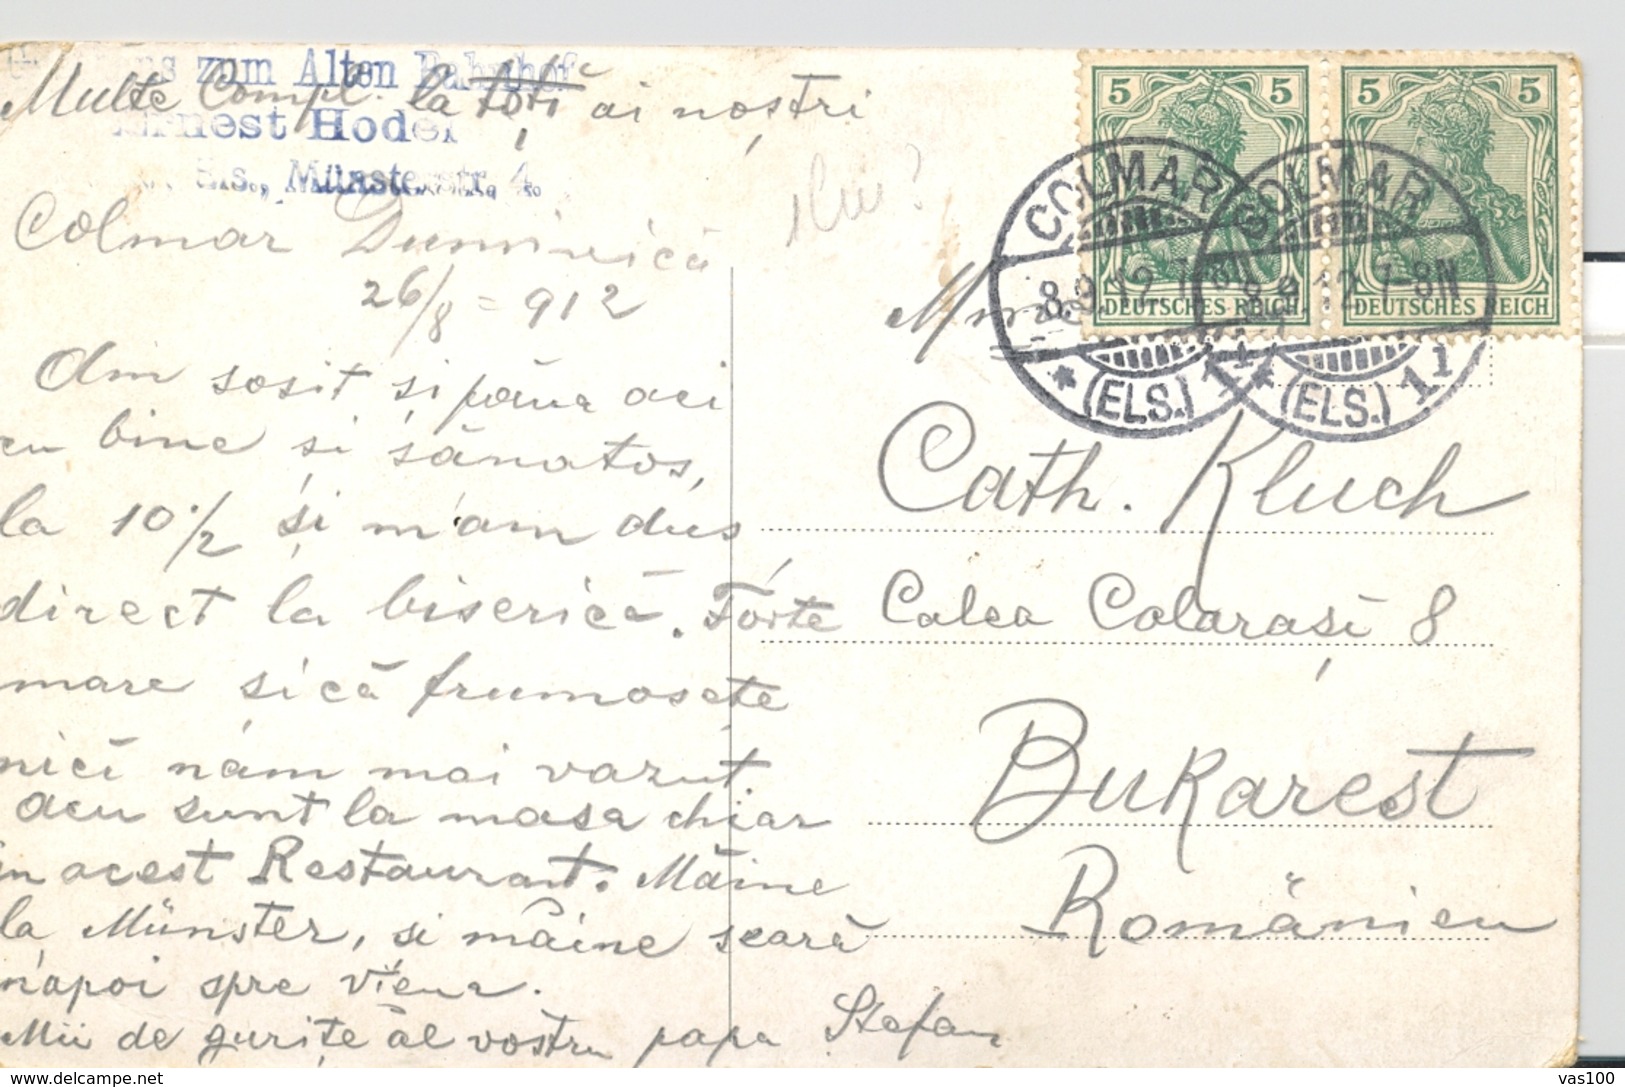 zum Alten Bahnhof
Multe Compl. la toți ai noștri
Ernest Hodel
Els., Münsterstr. 4.
Colmar Duminică
26/8 = 912
Am sosit și pâna aci
cu bine și sănatos,
la 10 1/2 și m'am dus
direct la biserică. Forte
mare și că frumosete
nici năm mai vazut
acu sunt la masa chiar
in acest Restaurant. Măine
la Münster, si mâine seară
năpoi spre Viena.
Mii de gurițe al vostru papa Stefan
5 5
DEUTSCHES REICH
5 5
DEUTSCHES REICH
COLMAR
8.9.12. 7-8N
* (ELS.) 11
COLMAR
8.9.12. 7-8N
* (ELS.) 11
Cath. Kluch
Calea Calarași 8
Bukarest
Românien
vas100